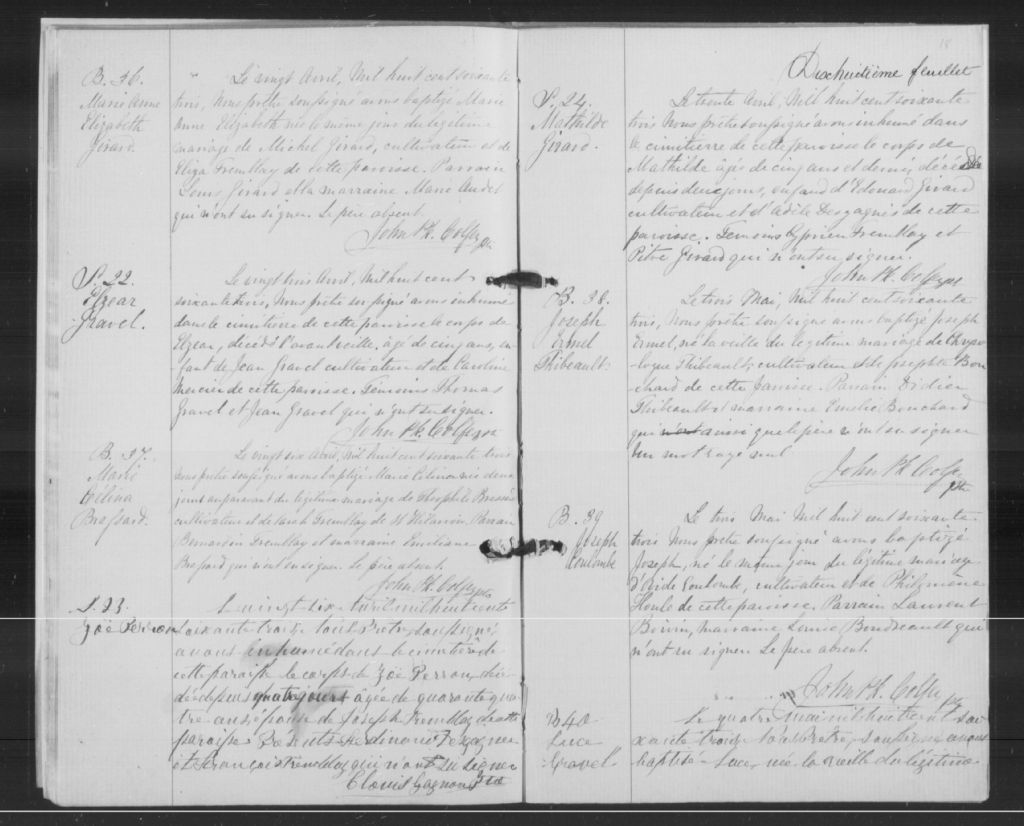 B. 36.
Marie Anne
Elizabeth
Girard.
Le vingt Avril, Mil huit cent soixante
trois, Nous prêtre soussigné avons baptisé Marie
Anne Elizabeth née le même jour du légitime
mariage de Michel Girard, cultivateur et de
Eliza Tremblay de cette paroisse. Parrain
Louis Girard et la marraine Marie Audet
qui n'ont su signer. Le père absent.
John Ph. Colfer ptre
S. 22.
Elzear
Gravel.
Le vingt trois Avril, Mil huit cent
soixante trois, Nous prêtre soussigné avons inhumé
dans le cimitierre de cette paroisse le corps de
Elzear, décédé l'avant veille, âgé de cinq ans, en-
fant de Jean Gravel cultivateur et de Caroline
Mercier de cette paroisse. Témoins Thomas
Gravel et Jean Gravel qui n'ont su signer.
John Ph. Colfer
B. 37.
Marie
Célina
Brassard.
Le vingt six Avril, Mil huit cent soixante trois
nous prêtre soussigné avons baptisé Marie Célina née deux
jours auparavant du légitime mariage de Théophile
cultivateur et de Sarah Tremblay de St Hilarion Parrain
Bernardin Tremblay et marraine Emiliane
Brassard qui n'ont su signer. Le père absent.
John Ph. Colfer ptre
S. 23
Zoë Perron
Le vingt six Avril mil huit cent
soixante trois Nous Prêtre, soussigné
avons inhumé dans le cimitière de
cette paroisse le corps de Zoë Perron, décé-
dée depuis quatre jours âgée de quarante qua-
tre ans épouse de Joseph Tremblay de cette
paroisse. Présents Ferdinand
et François Tremblay qui n'ont su signer
Clovis Gagnon Ptre
18
Dixhuitième feuillet
S. 24.
Mathilde
Girard.
Le trente Avril, Mil huit cent soixante
trois Nous prêtre soussigné avons inhumé dans
le cimitierre de cette paroisse le corps de
Mathilde âgée de cinq ans et demi, décédée
depuis deux jours, enfand d'Edouard Girard
cultivateur et d'Adèle Desgagnés de cette
paroisse. Témoins Cyprien Tremblay et
Pitre Girard qui n'ont su signer.
John Ph. Colfer ptre
B. 38.
Joseph
Ermel
Thibeault.
Le trois Mai, Mil huit cent soixante
trois, Nous prêtre soussigné avons baptisé Joseph
Ermel, né la veille du légitime mariage de Chryso-
logue Thibeault, cultivateur et de Josephte Bou-
chard de cette paroisse. Parrain Didier
Thibeault et marraine Emelie Bouchard
qui n'ont ainsi que le père n'ont su signer
Un mot rayé nul
John Ph. Colfer
ptre
B. 39
Joseph
Coulombe
Le trois Mai Mil huit cent soixante
trois Nous prêtre soussigné avons baptisé
Joseph, né le même jour du légitime mariage
d'Ovide Coulombe, cultivateur et de Philomène
Houle de cette paroisse, Parrain Laurent
Boivin, marraine Louise Boudreault qui
n'ont su signer Le père absent.
John Ph. Colfer ptre
B 40
Luce
Gravel
Le quatre Mai mil huit cent soi-
xante trois Nous Prêtre, soussigné avons
baptisé Luce, née la veille du légitime